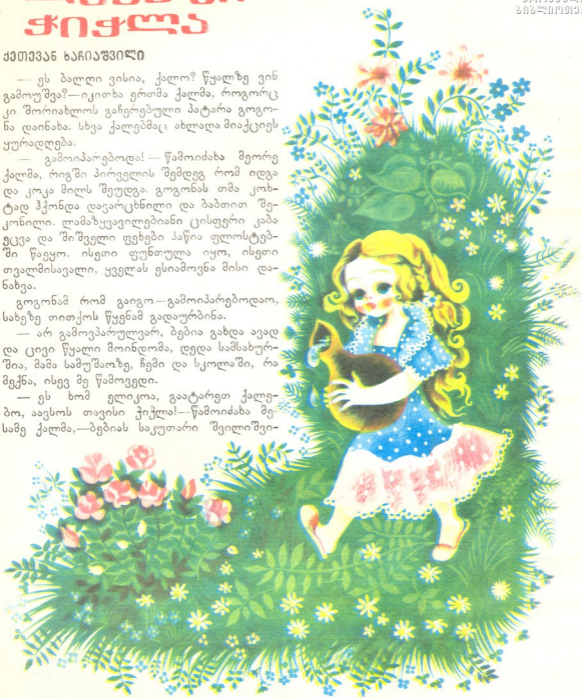 ჭიჭლა
ქეთევან ხარიაშვილი
— ეს ბალღი ვისია, ქალო? წყალზე ვინ
გამოუშვა?—იკითხა ერთმა ქალმა, როგორც
კი შორიახლოს გაჩერებული პატარა გოგო-
ნა დაინახა. სხვა ქალებმაც ახლაღა მიაქციეს
ყურადღება.
— გამოიპარებოდა! — წამოიძახა მეორე
ქალმა, რიგში პირველის შემდეგ რომ იდგა
და კოკა მილს შეუდგა. გოგონას თმა კოხ-
ტად ჰქონდა დავარცხნილი და ბაბთით შე-
კონილი. ლამაზყვავილებიანი ცისფერი კაბა
ეცვა და შიშველი ფეხები პაწია ფლოსტებ-
ში წაეყო. ისეთი ფუნთულა იყო, ისეთი
თვალმისავალი, ყველას ესიამოვნა მისი და-
ნახვა.
გოგონამ რომ გაიგო—გამოიპარებოდაო,
სახეზე თითქოს წყენამ გადაურბინა.
— არ გამოვპარულვარ, ბებია გახდა ავად
და ცივი წყალი მოინდომა, დედა სამსახურ-
შია, მამა სამუშაოზე, ჩემი და სკოლაში, რა
მექნა, ისევ მე წამოვედი.
— ეს ხომ ელიკოა, გაატარეთ ქალე-
ბო, აავსოს თავისი ჭიჭლა!—წამოიძახა მე-
სამე ქალმა,—ბებიას საკუთარი შვილიშვი-